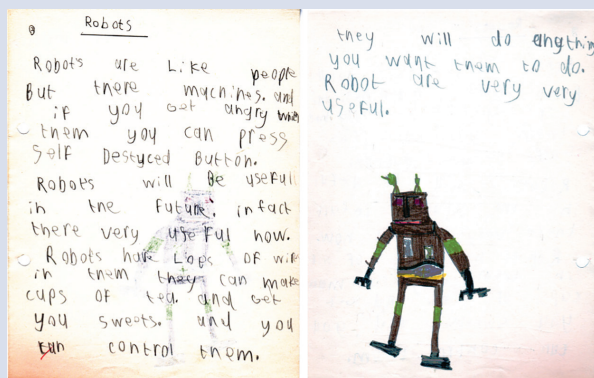 Robots
Robots are Like people
But there machines. and
if you get angry with
them you can press
self Destyced Button.
Robots will Be usefull
in the future. infact
there very useful now.
Robots have Lops of wir
in them they can make
cups of tea. and get
you sweets. and you
can control them.
they will do anything
you want them to do.
Robot are very very
useful.